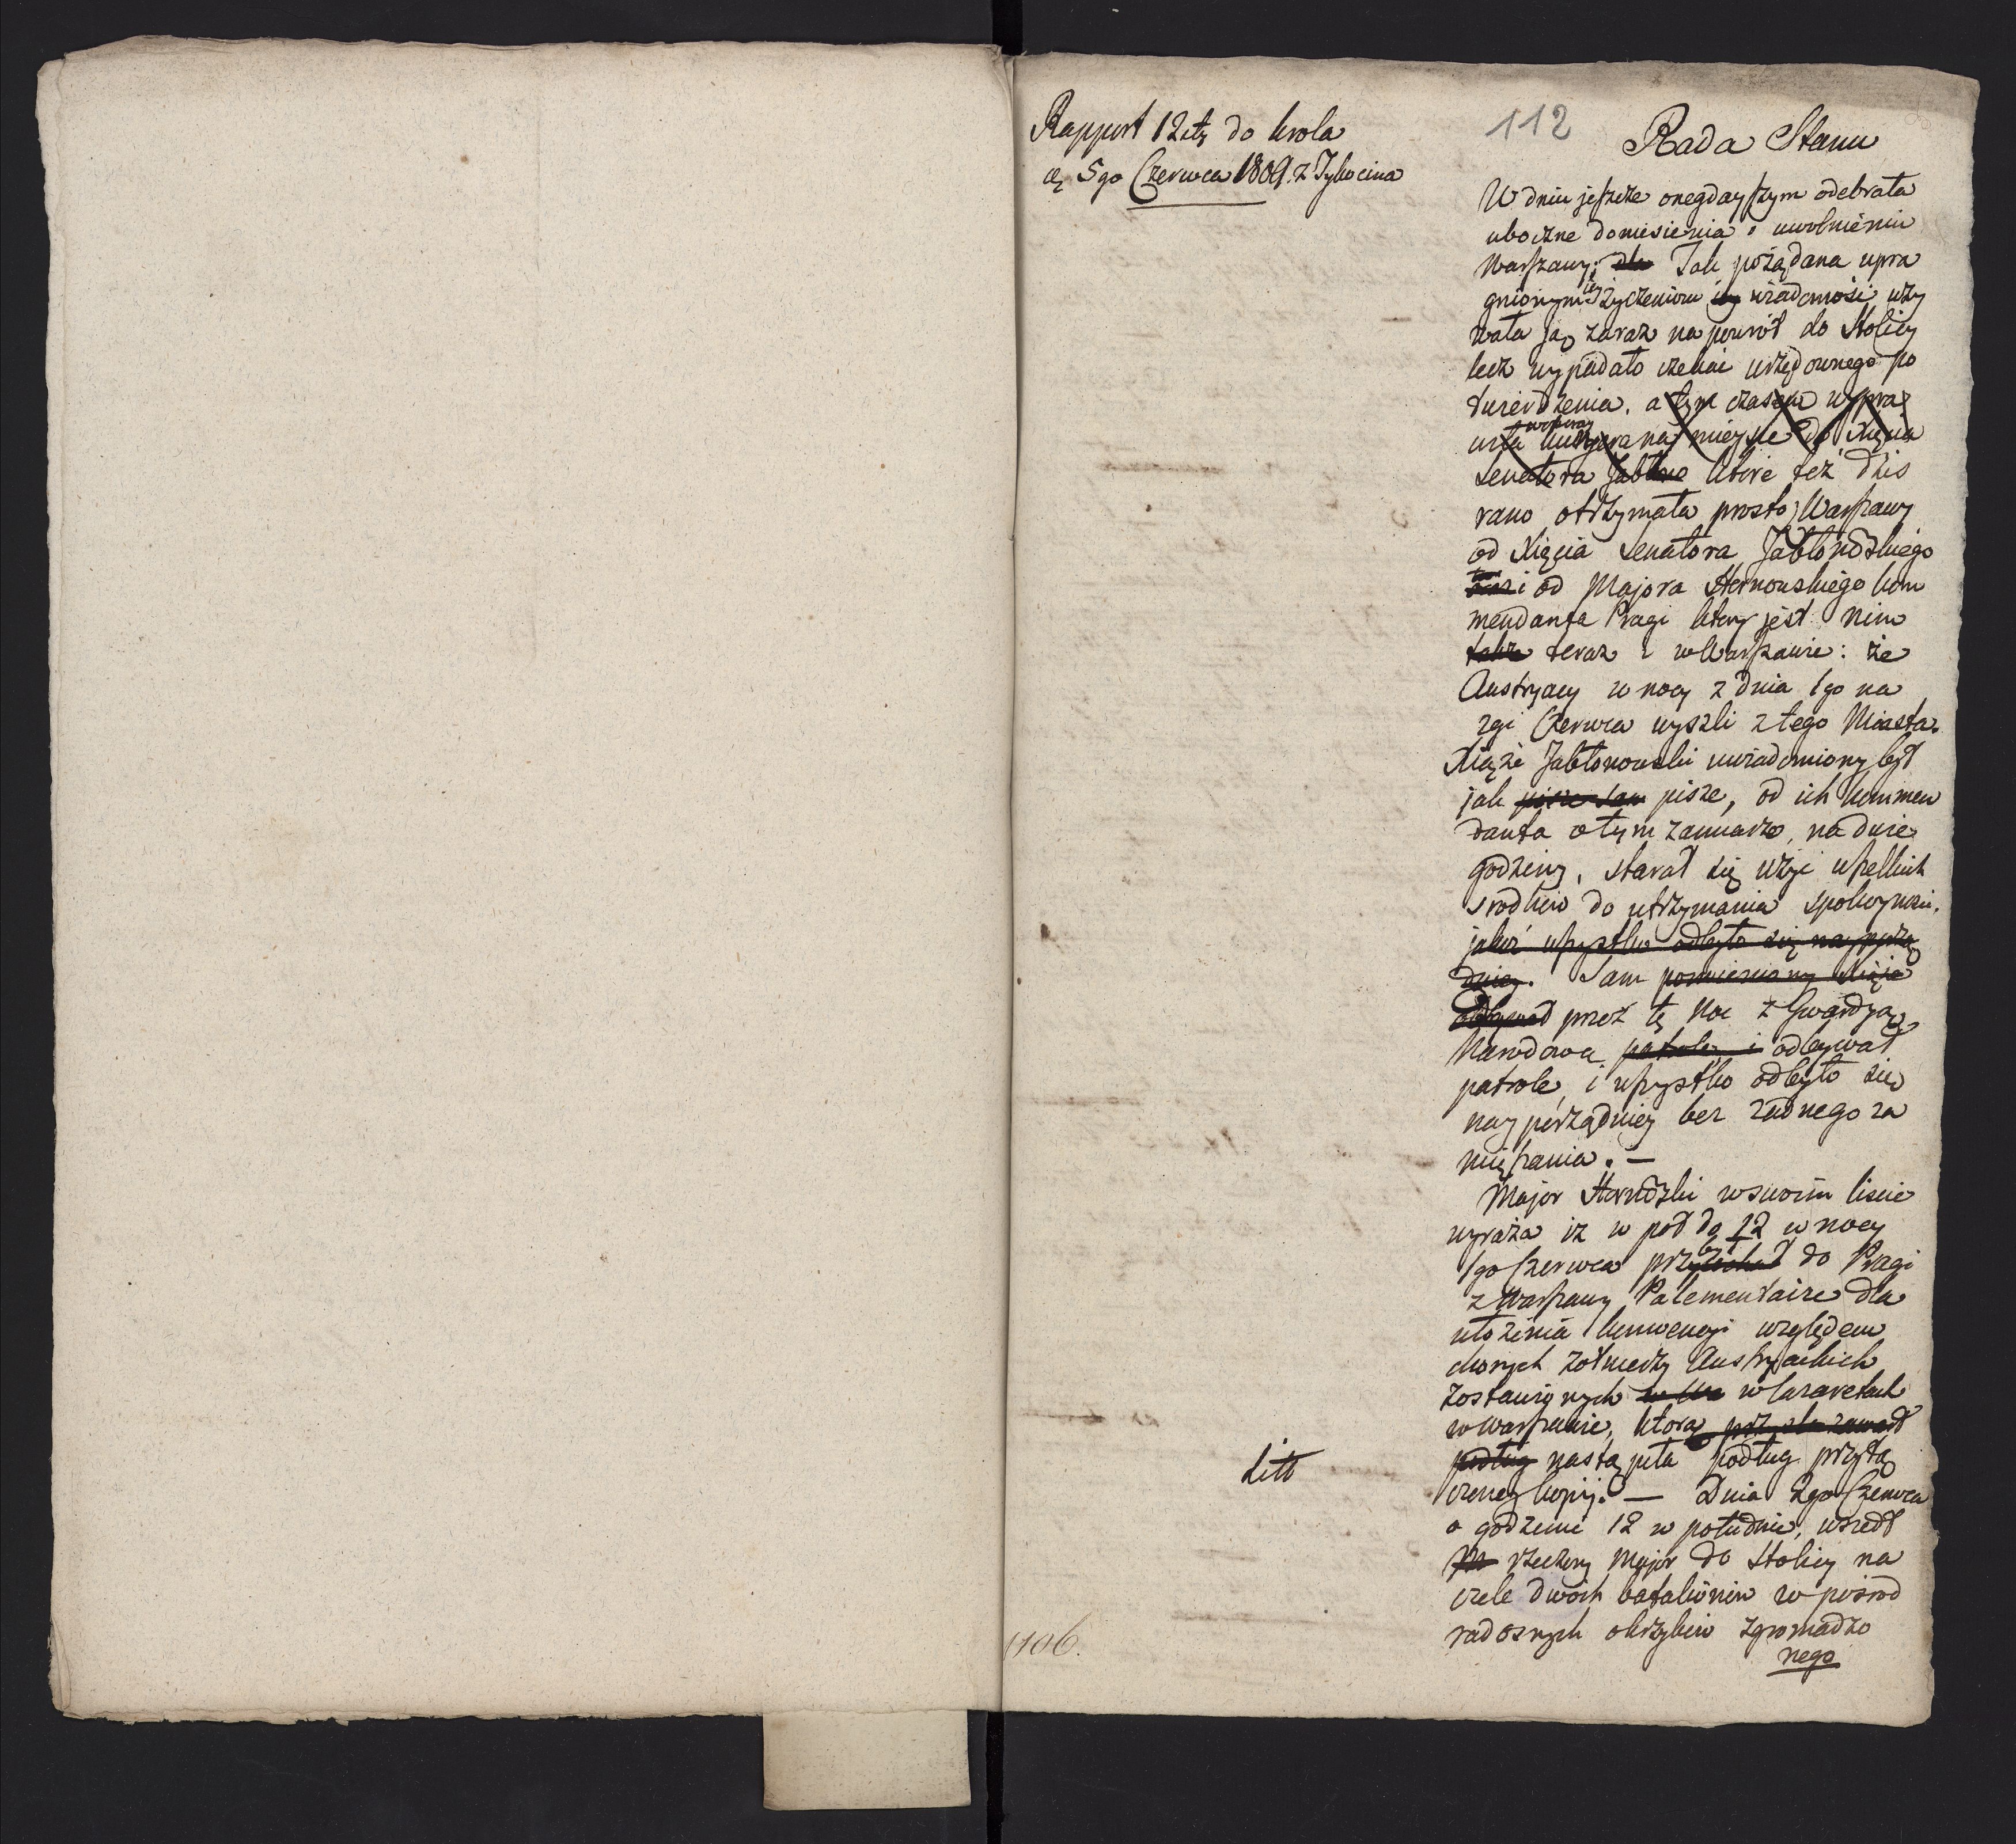 Rapport 12ty do krola
d. 5go Czerwca 1809. z Tykocina
112
Rada Stanu
W dniu jeszcze onegdayszym odebrała
uboczne doniesienia o uwolnieniu
Warszawy; dla Tak pożądana upra
gnionym iey życzeniom iey wiadomość wzy
wała ją zaraz na powrót do Stolicy
lecz wypadało czekać urzędownego po
twierdzenia. a tym czasem wypra
wiła kuryera na mieysce do Xięcia
Senatora Jabłno które też dziś
rano otrzymała prosto z Warszawy
od Xięcia Senatora Jabłonowskiego
i od Majora Hornowskiego kom
mendanta Pragi który jest nim
także teraz i w Warszawie: że
Austryacy w nocy z dnia 1go na
2gi Czerwca wyszli z tego Miasta.
Xiąże Jabłonowski uwiadomiony był
jak pisze sam pisze, od ich kommen
danta o tym zamiarze, na dwie
godziny, starał się użyć wszelkich
srodków do utrzymania spokoyności.
jakoż wszystko odbyło się nayporzą
dniey. Sam pomieniony Xiąże
odbywał przez tę noc z Gwardyą
Narodową patrole i odbywał
patrole, i wszystko odbyło się
nayporządniey bez żadnego za
mięszania. —
Major Hornowski w swoim liscie
wyraża iż w poł do 12 w nocy
1go Czerwca przybył do Pragi
z Warszawy Palementaire dla
ułożenia konwencyi względem
chorych żołnierzy Austryackich
zostawionych w lazaretach
w Warszawie, która
podług nastąpiła podług przyłą
czoney kopij. — Dnia 2go Czerwca
Litt
o godzinie 12 w południe, wszedł
rzeczony Major do Stolicy na
czele dwóch batalionów w pośrod
radosnych okrzyków zgromadzo
nego
106.